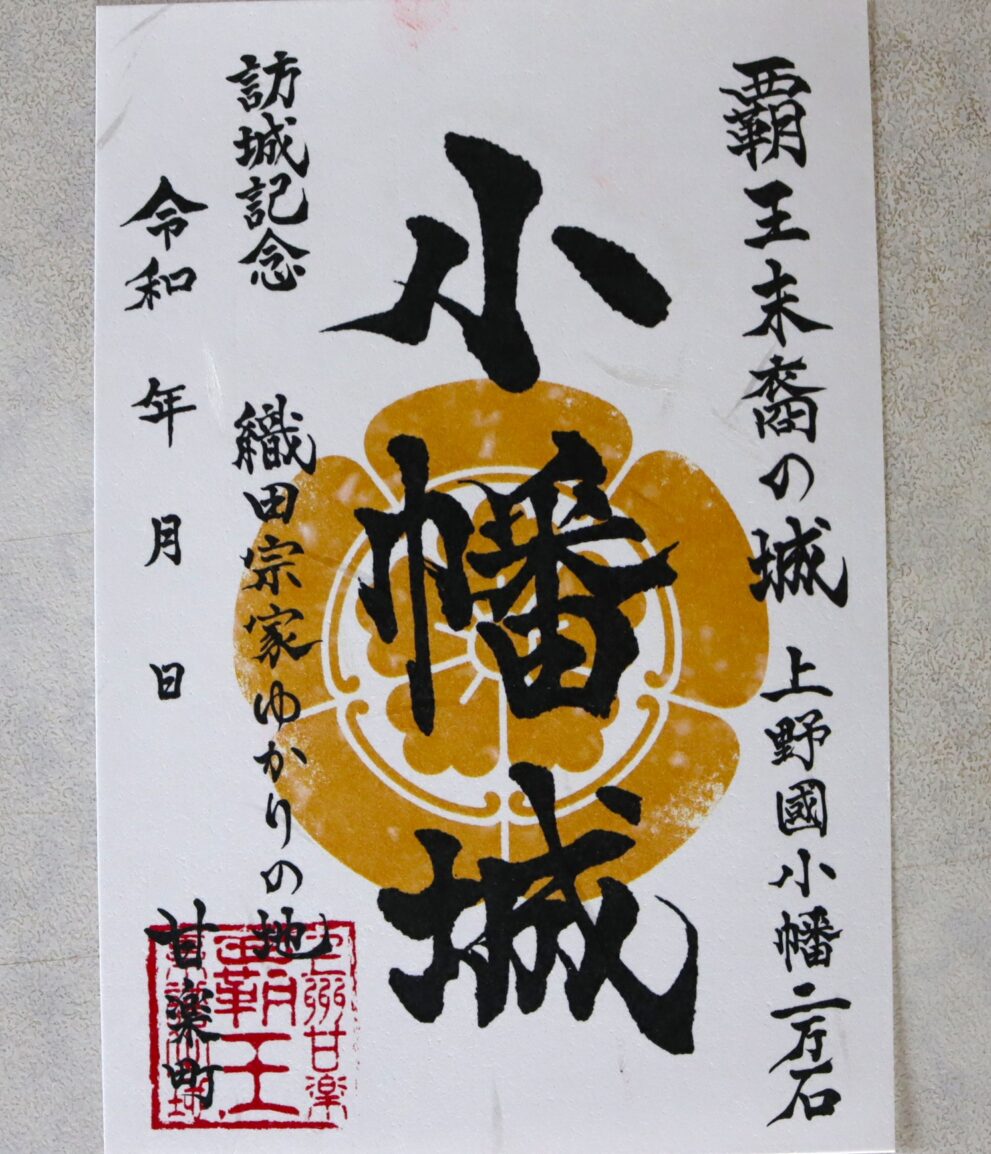 覇王末裔の城 上野國小幡二万石
小幡城
訪城記念 織田宗家ゆかりの地
令和 年 月 日 甘楽町
覇王